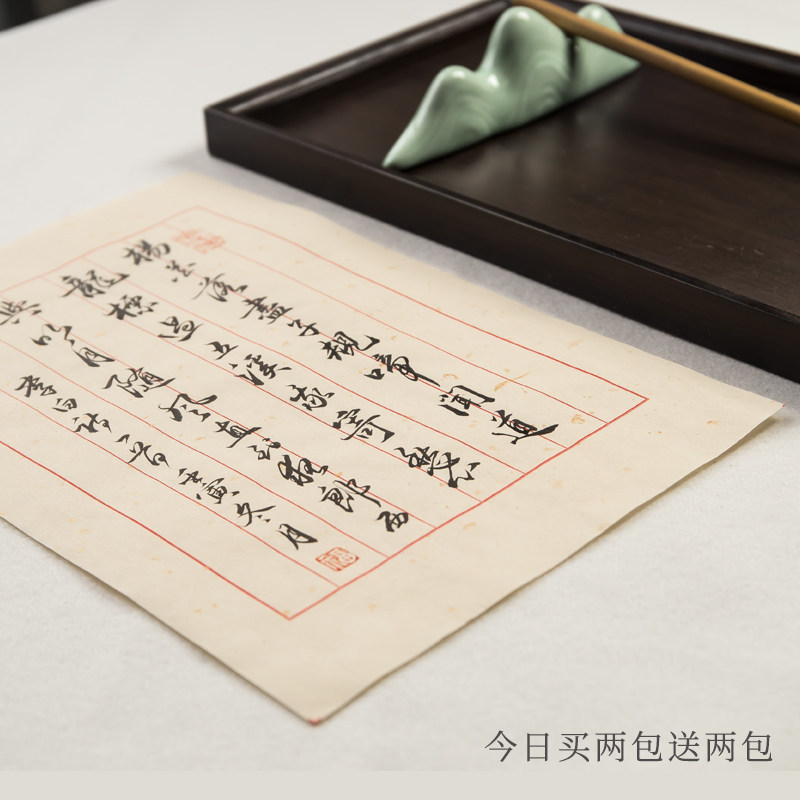 楊花落盡子規啼聞道
龍標過五溪我寄愁心
與明月隨風直到夜郎西
李白詩一首壬寅冬月
今日买两包送两包